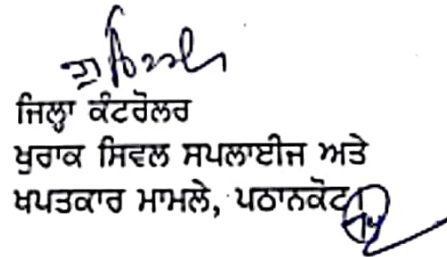 ਜਿਲ੍ਹਾ ਕੰਟਰੋਲਰ
ਖੁਰਾਕ ਸਿਵਲ ਸਪਲਾਈਜ ਅਤੇ
ਖਪਤਕਾਰ ਮਾਮਲੇ, ਪਠਾਨਕੋਟ।